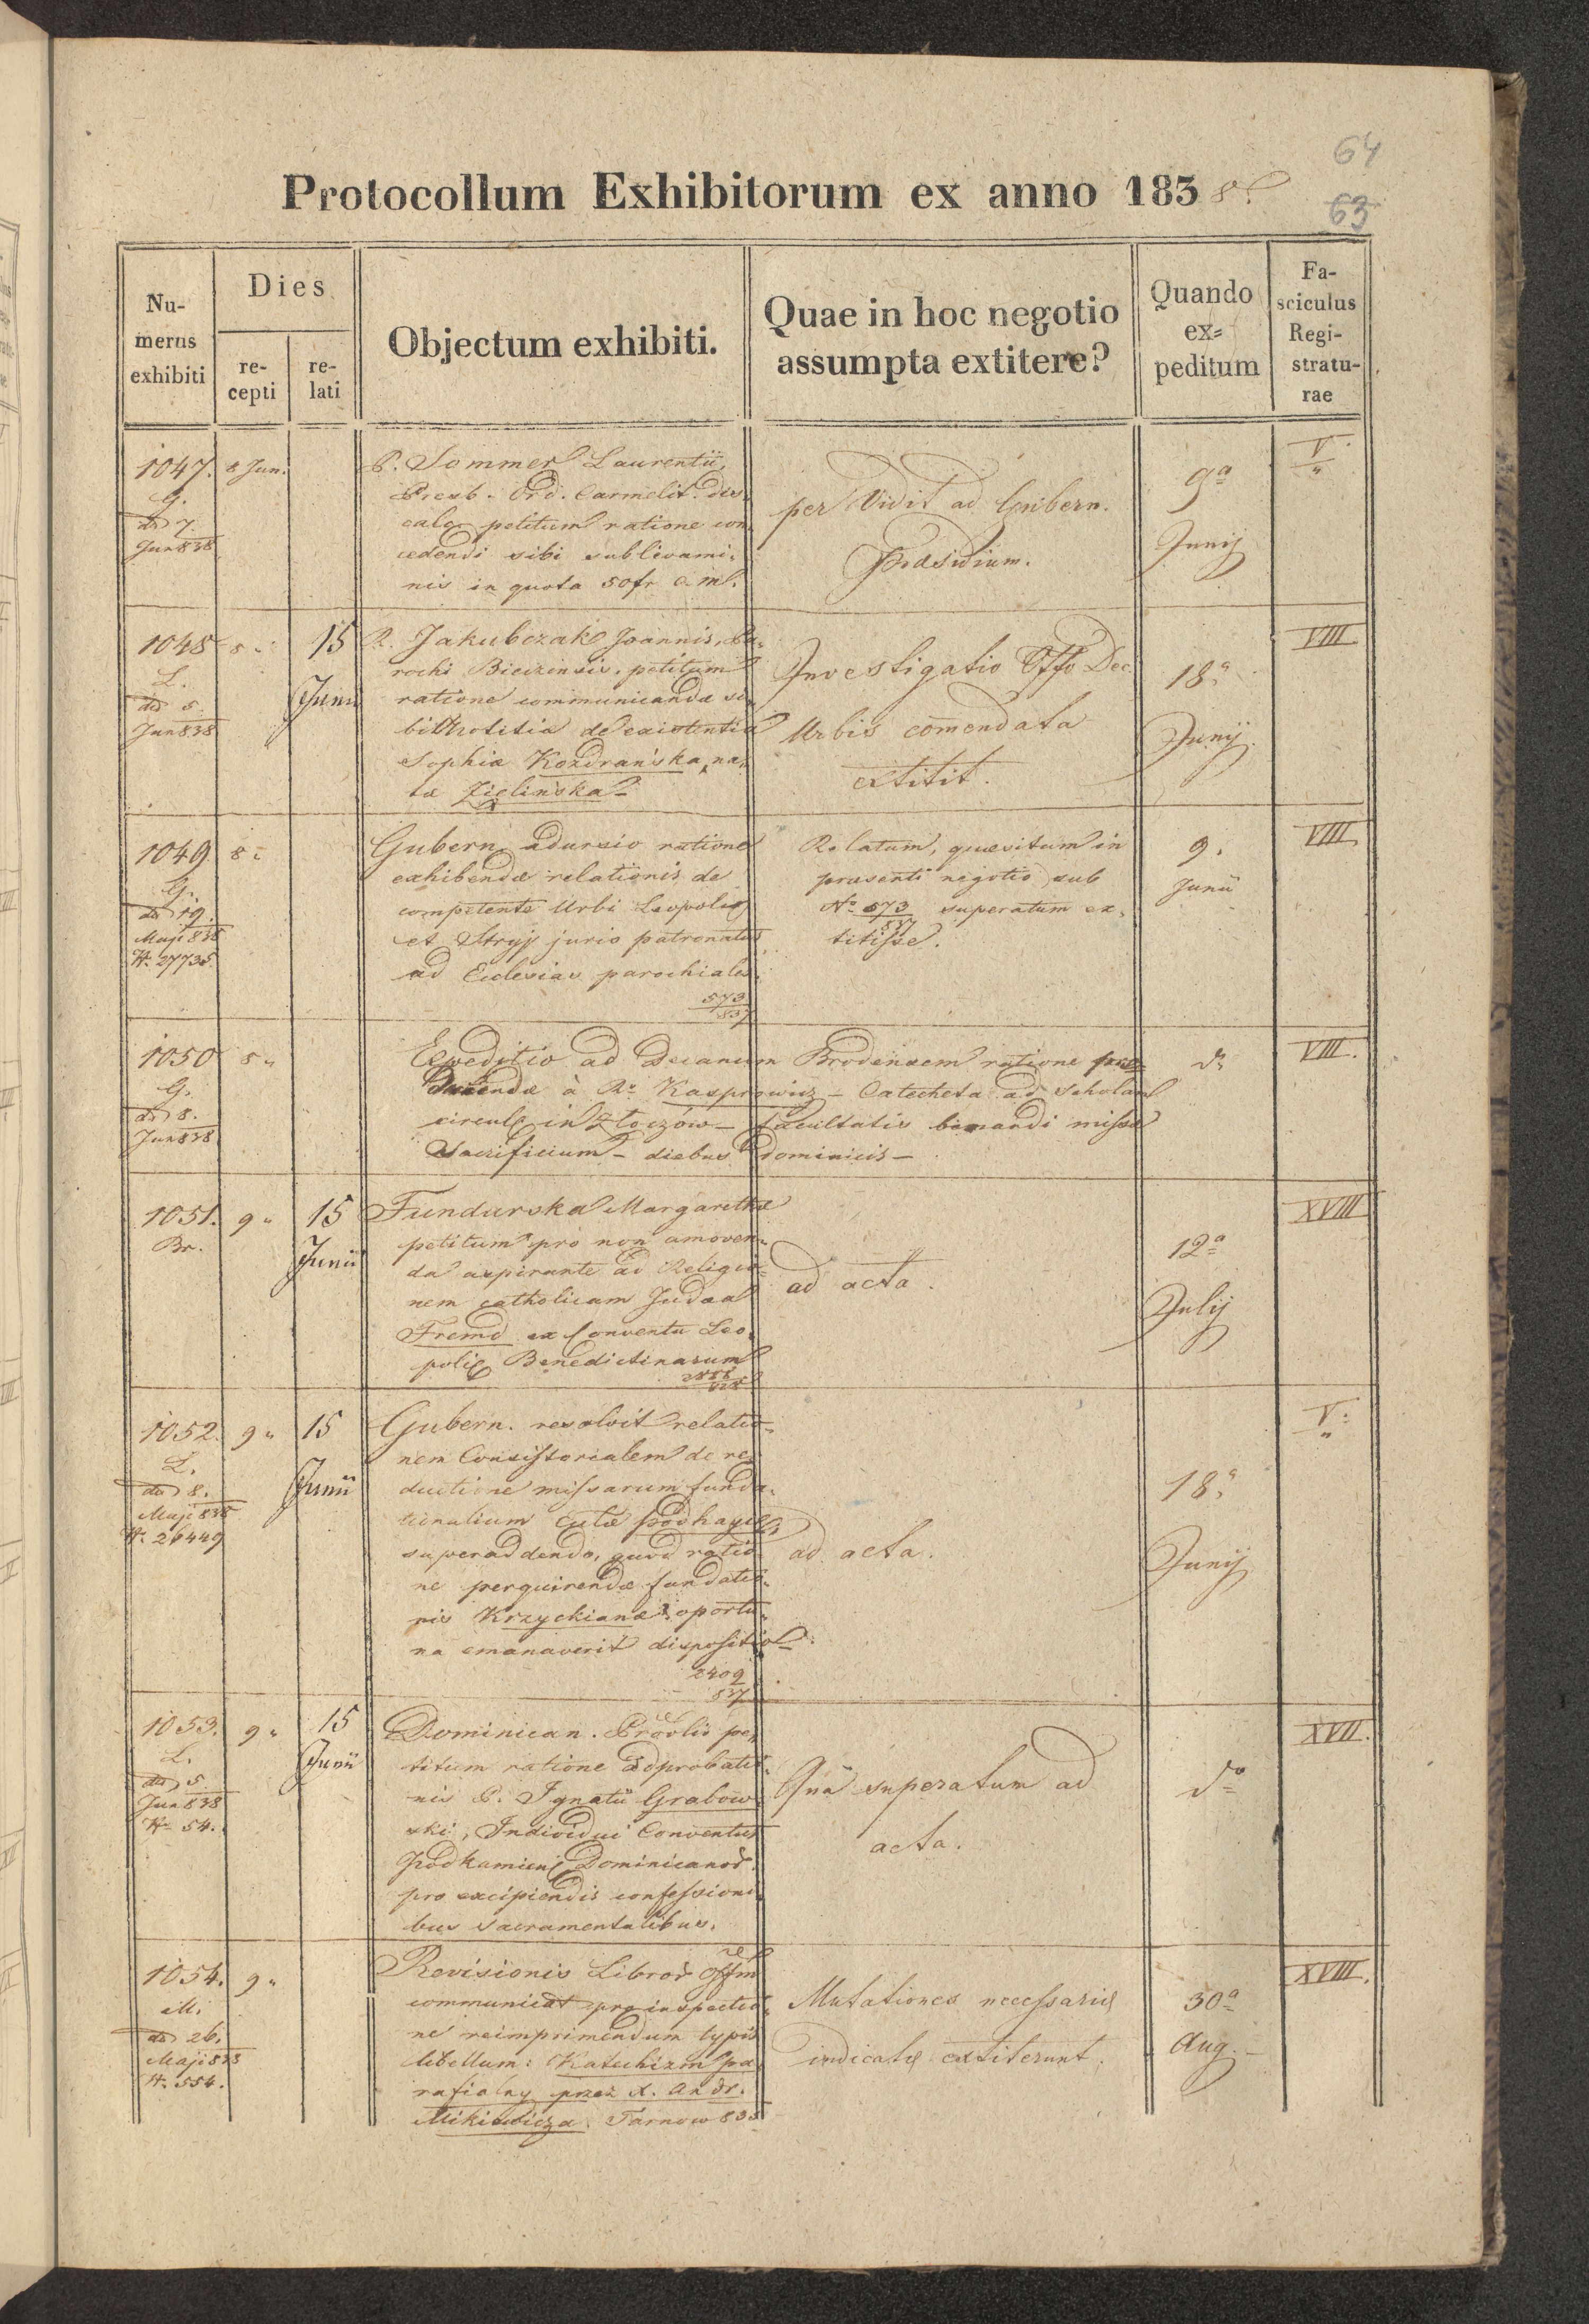 64
Protocollum Exhibitorum ex anno 1838.
63
Numerus exhibiti
Dies
recepti
relati
Objectum exhibiti.
Quae in hoc negotio
assumpta extitere?
Quando
ex=
peditum
Fa-
sciculus
Regi-
stratu-
rae
1047. 8 Jun.
G.
dd 7.
Jun 838
P. Sommer Laurentii,
Presb. Ord. Carmelit. dis-
calc. petitum ratione con-
cedendi sibi sublevami-
nis in quota 50 fr c. m.
per Vidit ad Gubern.
Praesidium.
9a
Junij
V.
1048 8 "
15
Junii
L.
dd 5.
Jun 838
R. Jakubczak Joannis, Pa-
rochi Bieczensis, petitum
ratione communicandæ si-
bi notitiæ de existentia
Sophiæ Kozdrańska, na-
tæ Zielińska
Investigatio Offo Dec.
Urbis comendata
extitit.
18a
Junij
VIII
1049 8 "
G.
dd 19.
Maji 838
N. 27735.
Gubern. adursio ratione
exhibendæ relationis de
competente Urbi Leopolis
et Stryj juris patronatus
ad Ecclesias parochiales.
573
837
Relatum, quæsitum in
præsenti negotio sub
No 573
837 superatum ex-
titisse.
9.
Junii
VIII
1050 8 "
G.
dd 8.
Jun 838
Expeditio ad Decanum Brodensem ratione
à R. Kasprowicz – Catecheta ad Scholam
circul. in Złoczów – facultatis binandi missæ
Sacrificium – diebus dominicis –
do
VIII.
1051. 9 "
15
Junii
Br.
Fundurska Margarethæ
petitum pro non amoven-
da aspirante ad Religio-
nem catholicam Judæa
Fremd ex Conventu Leo-
polis Benedictinarum
ad acta.
12a
Julij
XVIII
1052. 9 "
15
Junii
L.
dd 8.
Maji 838
N. 26449
Gubern. resolvit relatio-
nem Consistorialem de re-
ductione missarum funda-
tionalium Ecclæ Podhayce
superaddendo, quod ratio-
ne perquirendæ fundatio-
nis Krzyckianæ oportu-
na emanaverit dispositio.
2409
837
ad acta.
18a
Junij
V.
1053. 9 "
15
Junii
L.
dd 5.
Jun 838
N. 54.
Dominican. Provlis pe-
titum ratione adprobatio-
nis P. Ignatii Grabow-
ski, Individui Conventus
Podkamieni Dominicanor.
pro excipiendis confessioni-
bus Sacramentalibus.
Qua superatum ad
acta.
do
XVII.
1054. 9 "
M.
dd 26.
Maji 838
N. 554.
Revisionis Libror. Offm
communicat pro inspectio-
ne reimprimendum typis
libellum: Katechizm pa-
rafialny przez X. Andr.
Mikiewicza. Tarnow 835
Mutationes necessariæ
indicatæ extiterunt.
30a
Aug.
XVIII.